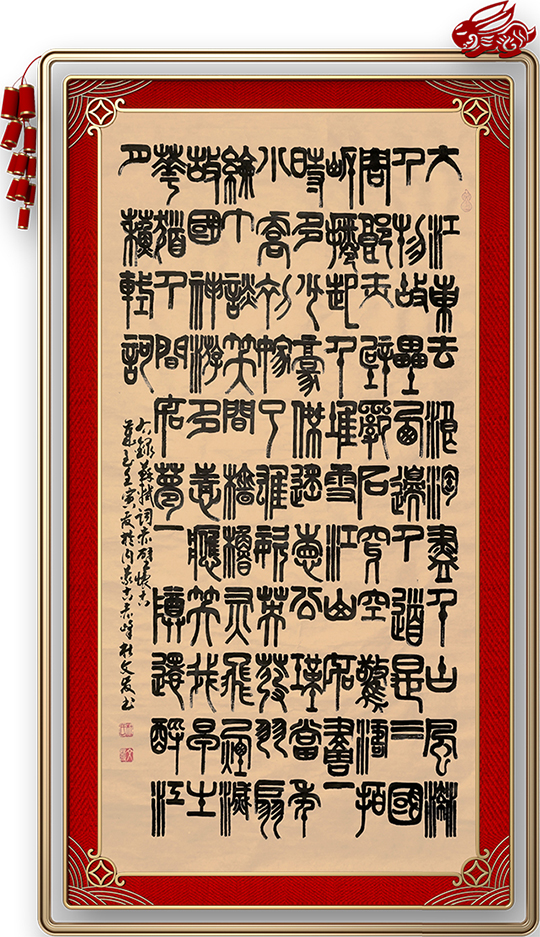 大江東去浪淘盡千古風流
人物故壘西邊人道是三國
周郎赤壁亂石穿空驚濤拍
岸捲起千堆雪江山如畫一
時多少豪傑遥想公瑾當年
小喬初嫁了雄姿英發羽扇
綸巾談笑間檣櫓灰飛煙滅
故國神游多情應笑我早生
華髮人間如夢一樽還酹江
月蘇軾詞
右録蘇軾詞赤壁懷古
壬寅夏於内蒙古赤峰杜文發書